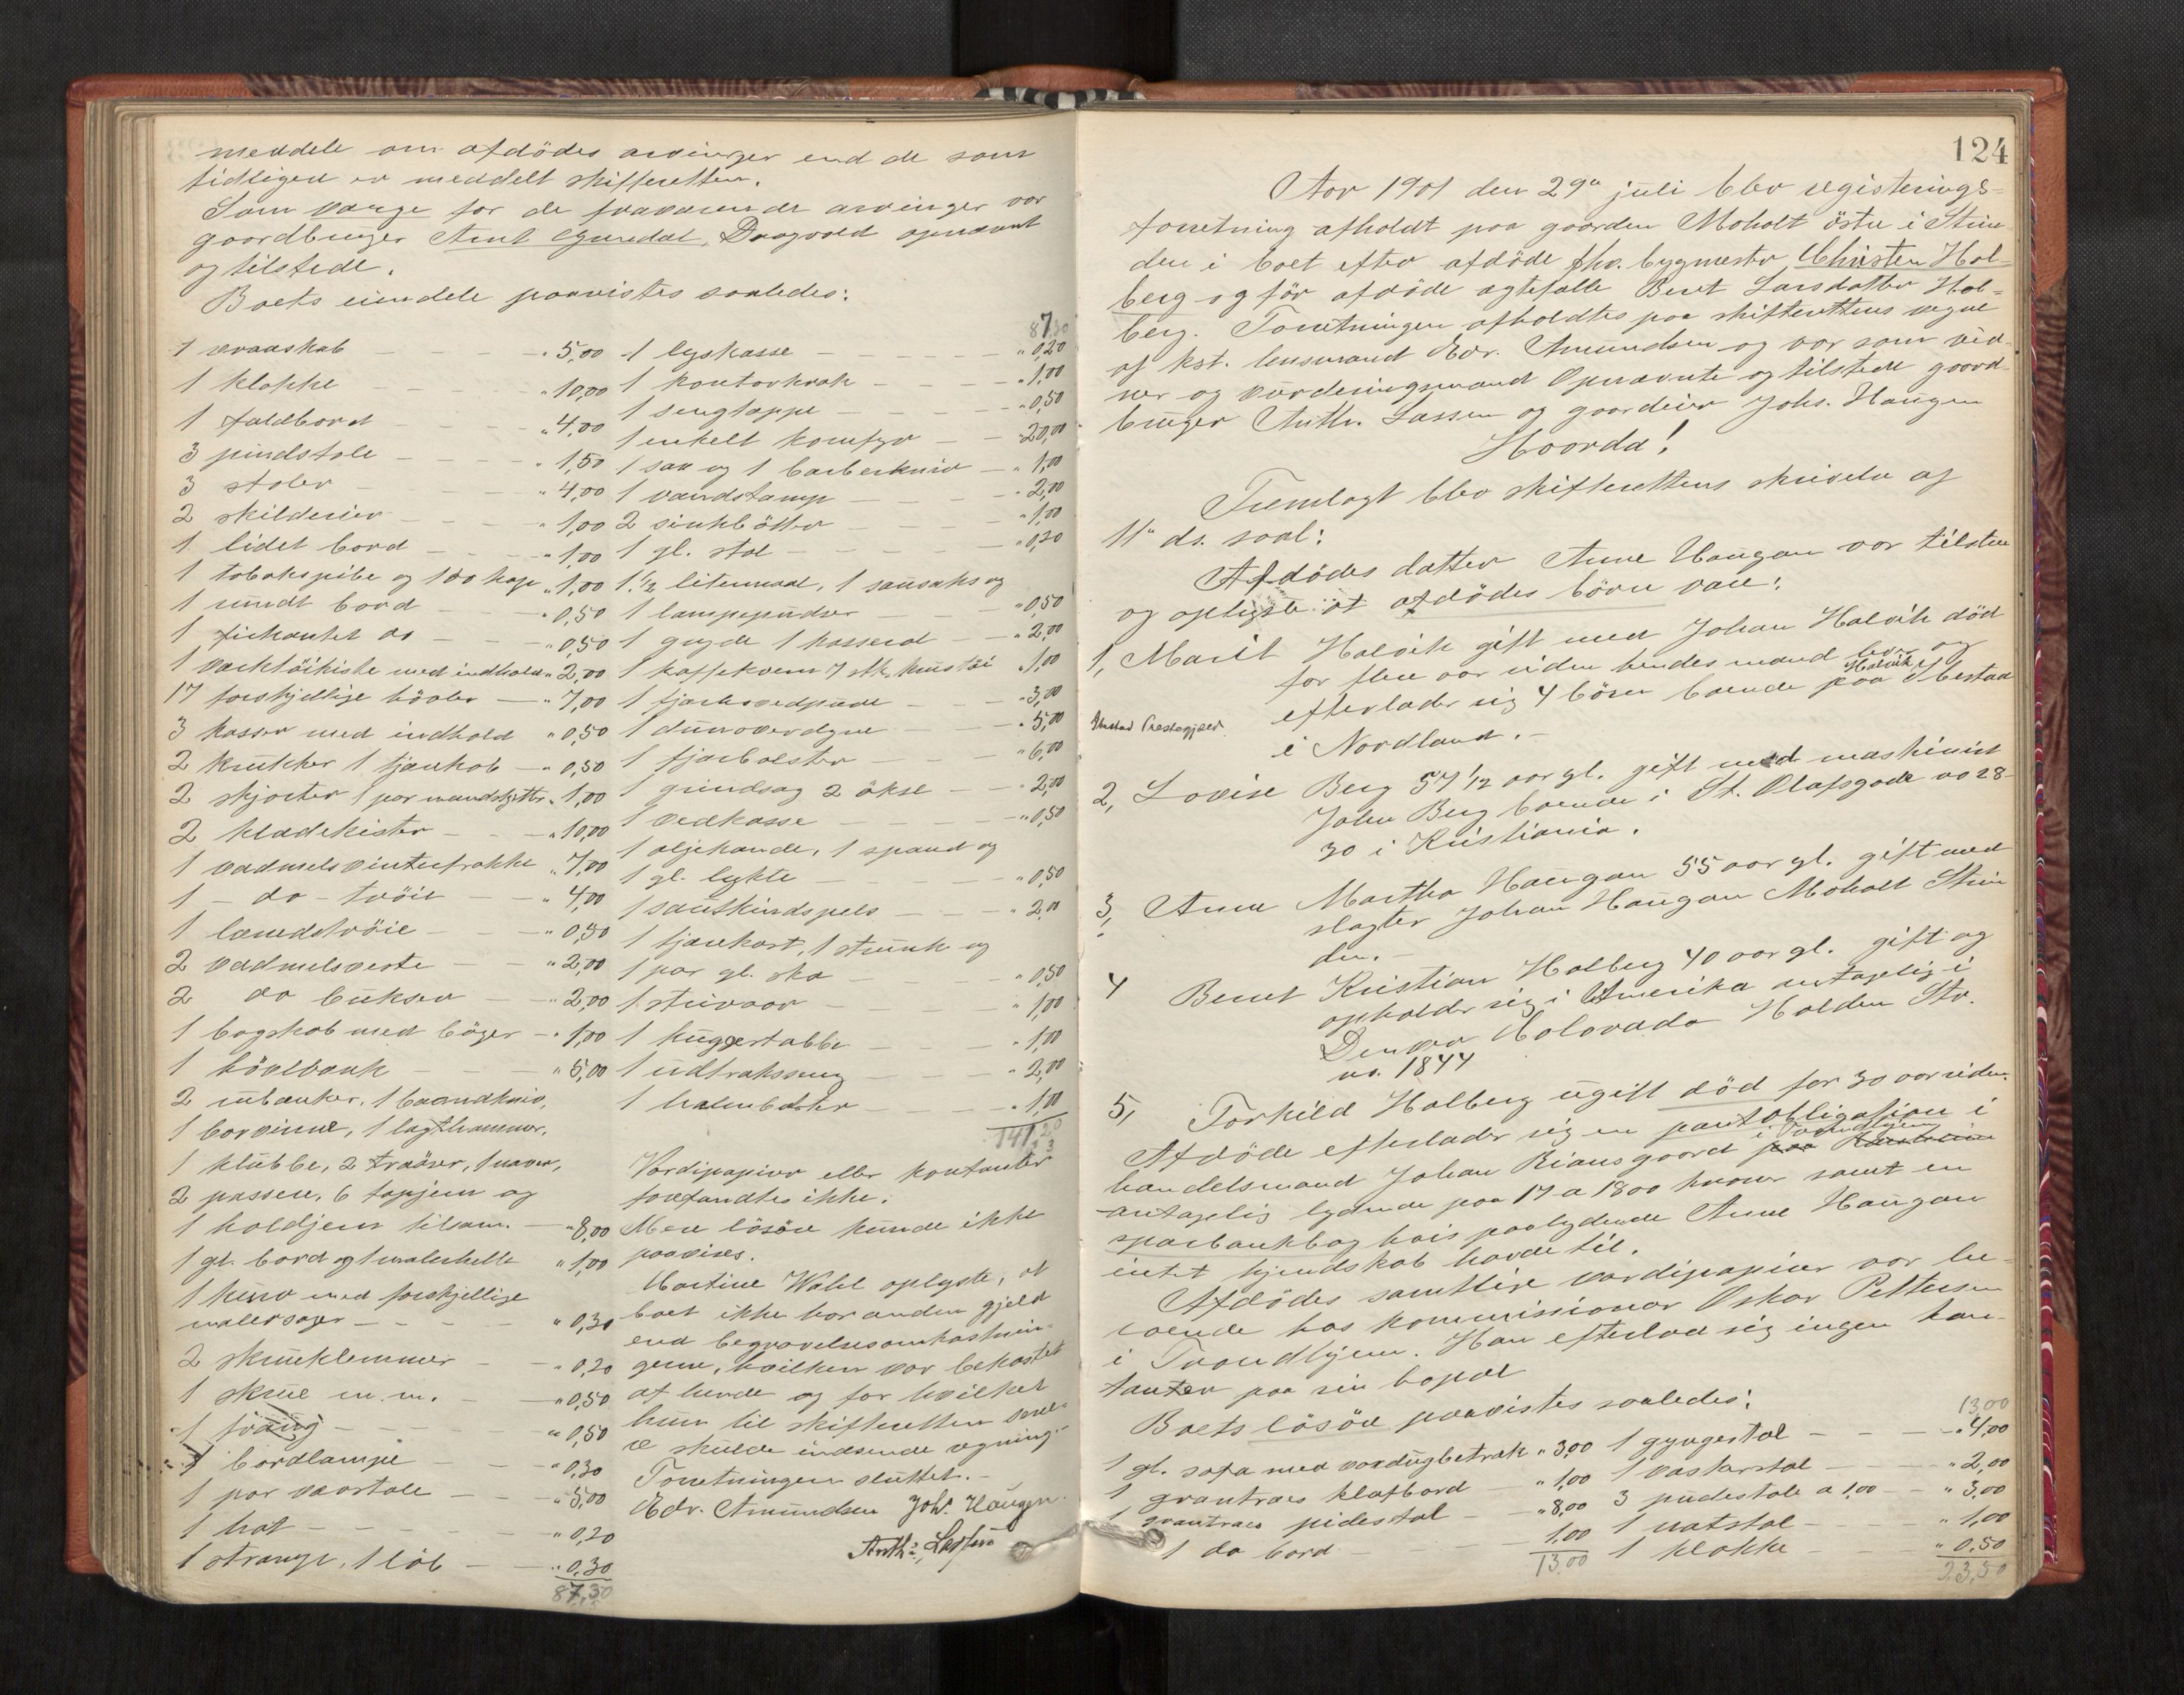 meddele om afdödes arvinger end de som
tidligere er meddelt skifteretten.
Som værge for de fraværende arvinger var
gaardbruger Arnt Dragvold opnævnt
og tilstede.
Boets eiendele paavistes saaledes:
1 vraaskab - - - " 5,00
1 klokke - - - " 10,00
1 foldbord - - - " 4,00
3 pindstole - - - " 1,50
3 stoler - - - " 4,00
2 skilderier - - - " 1,00
1 lidet bord - - - " 1,00
1 tobakspibe og 100 " 1,00
1 rundt bord - - - " 0,50
1 firkantet do - - - " 0,50
1 værktöikiste med indhold " 2,00
17 forskjellige hövler - " 7,00
3 kasser med indhold " 0,50
2 krukker 1 " 0,50
2 skjorter 1 par " 1,00
2 klædekister - - " 10,00
1 vadmelsvinterfrakke " 7,00
1 - do - tröie - - " 4,00
1 lærredströie - - " 0,50
2 vadmelsveste - - " 2,00
2 do bukser - - " 2,00
1 bogskab med böger - " 1,00
1 hövlbænk - - - " 5,00
2 1 baandkniv,
1 borvinne, 1 lagthammer,
1 klubbe, 2 1 naver,
2 passere, 6 tapjern og
1 holdjern tilsam. - " 8,00
1 gl. bord og 1 malerhelle " 1,00
1 kurv med forskjellige
malersager - - - " 0,30
2 skrueklemmer - - " 0,20
1 skrue m.m. - - " 0,50
1 - - - " 0,50
1 bordlampe - - " 0,30
1 par - - " 5,00
1 hat - - - " 0,20
1 strange, 1 löb - - " 0,30
87,30
87,30
1 lyskasse - - - " 0,20
1 kontorkrak - - - " 1,00
1 sengtæppe - - - " 0,50
1 enkelt komfyr - - " 20,00
1 sax og 1 barberkniv - " 1,00
1 vandstamp - - - " 2,00
2 sinkbötter - - - " 1,00
1 gl. stol - - - " 0,20
1 1/2 litermaal, 1 sausaks og
1 lampepudser - - " 0,50
1 gryde 1 kasserol - - " 2,00
1 kaffekvern 7 stk. " 1,00
1 - - " 3,00
1 dunoverdyne - - " 5,00
1 fjærbolster - - - " 6,00
1 grindsag 2 ökse - - " 2,00
1 vedkasse - - - " 0,50
1 oljekande, 1 spand og
1 gl. lykte - - - " 0,50
1 saueskindspels - - " 2,00
1 1 og
1 par gl. sko - - " 0,50
1 stivaar - - - " 1,00
1 - - - " 1,00
1 udtræksseng - - " 2,00
1 halmbolster - - " 1,00
141,20
Værdipapirer eller kontanter
forefandtes ikke.
Mere lösöre kunde ikke
paavises.
Martine Wahl oplyste, at
boet ikke har anden gjeld
end begravelsesomkostnin-
gerne, hvilken var bekostet
af hende og for hvilket
hun til skifteretten
skulde indsende regning.-
Forretningen sluttet.-
Edv. Amundsen Joh. Haugen
Anth. Lassen
124
Aar 1901 den 29de juli blev registerings-
forretning afholdt paa gaarden Moholt östre i Strin-
den i boet efter afdöde fhv. bygmester Christen Hol-
berg og för afdöde ægtefælle Beret Larsdatter Hol-
berg. Forretningen afholdtes paa skifterettens vegne
af kst. lensmand Edv. Amundsen og var som vid-
ner og vurderingsmænd opnævnte og tilstede gaard-
bruger Anth. Lassen og gaardeier Johs. Haugen
Hvorda!
Fremlagt blev skifterettens skrivelse af
11te ds. saal:
Afdödes datter Anne Haugan var tilstede
og oplyste at afdödes börn vare:
1, Marit Halvik gift med Johan Halvik död
for flere aar siden hendes mand lever og
efterlader sig 4 börn boende paa Halvik i Ibestad
Ibestad Prestegjeld
i Nordland.-
2, Lovise Berg 57 1/2 aar gl. gift med maskinist
John Berg boende i St. Olafsgade no 28-
30 i Kristiania.
3, Anne Martha Haugan 55 aar gl. gift med
slagter Johan Haugan Moholt Strin
den.-
4 Bernt Kristian Holberg 40 aar gl. gift og
opholder sig i Amerika antagelig i
Denver Colorado Holden Str.
no. 1844
5, Torkild Holberg ugift död for 30 aar siden.
Afdöde efterlader sig en pantobligation i
handelsmand Johan Riansgaard paa i Trondhjem
antagelig lydende paa 17 a 1800 kroner samt en
sparbankbog hvis paalydende Anne Haugan
intet kjendskab havde til.
Afdödes samtlige værdipapirer var be-
roende hos kommissionær Oskar Pettersen
i Trondhjem. Han efterlod sig ingen kon-
tanter paa sin bopæl
Boets lösöre paavistes saaledes:
1 gl. sofa med voxdugbetræk " 3,00
1 grantræs klafbord - " 1,00
1 grantræs pidestal - " 8,00
1 do bord - - 1,00
13,00
13,00
1 gyngestol - - - " 4,00
1 - - - " 2,00
3 pudestole a 1,00 - - " 3,00
1 natstol - - - " 1,00
1 klokke - - - " 0,50
23,50